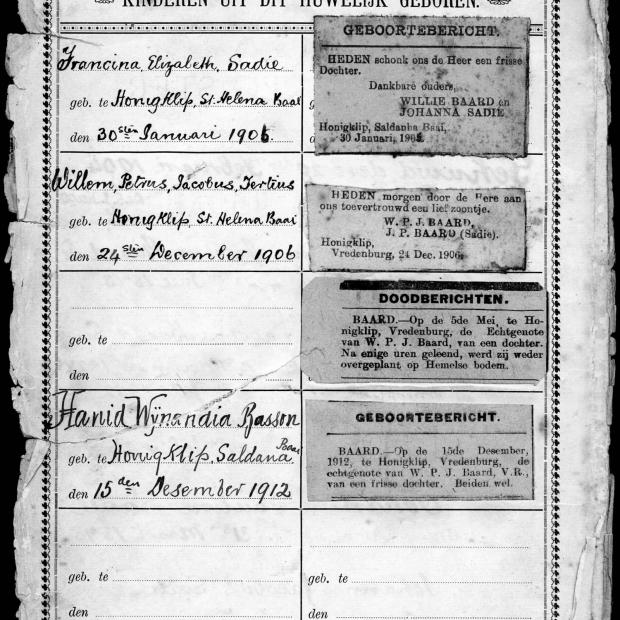 KINDEREN UIT DIT HUWELIJK GEBOREN.
Francina, Elizabeth, Sadie
geb. te Honigklip, St. Helena Baai
den 30sten Januari 1905.
GEBOORTEBERICHT.
HEDEN schonk ons de Heer een frisse
Dochter.
Dankbare ouders,
WILLIE BAARD en
JOHANNA SADIE
Honigklip, Saldanha Baai,
30 Januari, 1905.
Willem, Petrus, Jacobus, Tertius
geb. te Honigklip, St. Helena Baai
den 24sten December 1906
HEDEN morgen door de Here aan
ons toevertrouwd een lief zoontje.
W. P. J. BAARD,
J. P. BAARD (Sadie).
Honigklip,
Vredenburg, 24 Dec. 1906.
geb. te
den
DOODBERICHTEN.
BAARD.—Op de 5de Mei, te Ho-
nigklip, Vredenburg, de Echtgenote
van W. P. J. Baard, van een dochter.
Na enige uren geleend, werd zij weder
overgeplant op Hemelse bodem.
Hanid Wijnandia Basson
geb. te Honig Klip, Saldana Baai
den 15den Desember 1912
GEBOORTEBERICHT.
BAARD.—Op de 15de Desember,
1912, te Honigklip, Vredenburg, de
echtgenote van W. P. J. Baard, V.R.,
van een frisse dochter. Beiden wel.
geb. te
den
geb. te
den